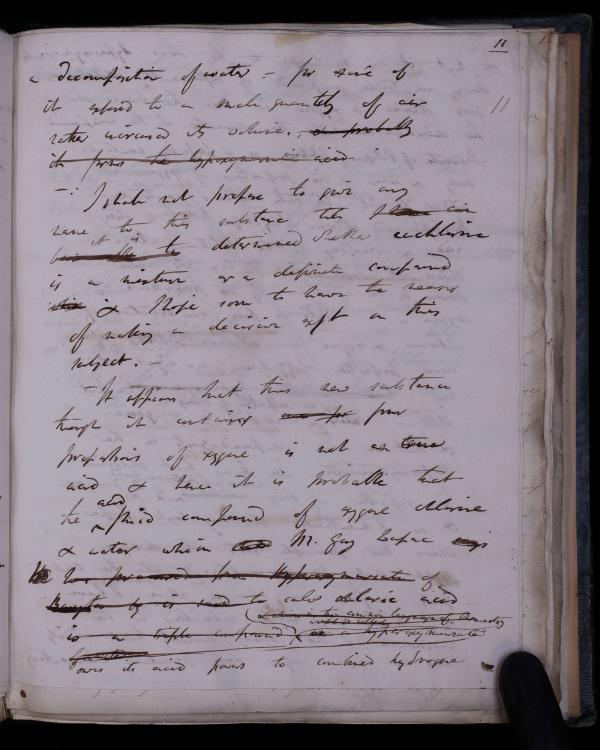 11
a decomposition of water – for some of
it exposed to a small quantity of air
11
rather increased its volume. – & probably
it forms the hyperoxymuriatic acid
– I shall not propose to give any
name to this substance till
it is to determined whether euchlorine
is a mixture or a definite compound
& I hope soon to have the means
of making a decisive expt on this
subject. –
– It appears that this new substance
though it contains four
proportions of oxygene is not an
acid & hence it is probable that
the acid fluid compound of oxygene chlorine
& water which M. Gay Lussac
the hyperoxymuriate of
Barytes by is said to calls chloric acid
is a triple compound
as a hyperoxymuriate
owes its acid powers to combined hydrogene